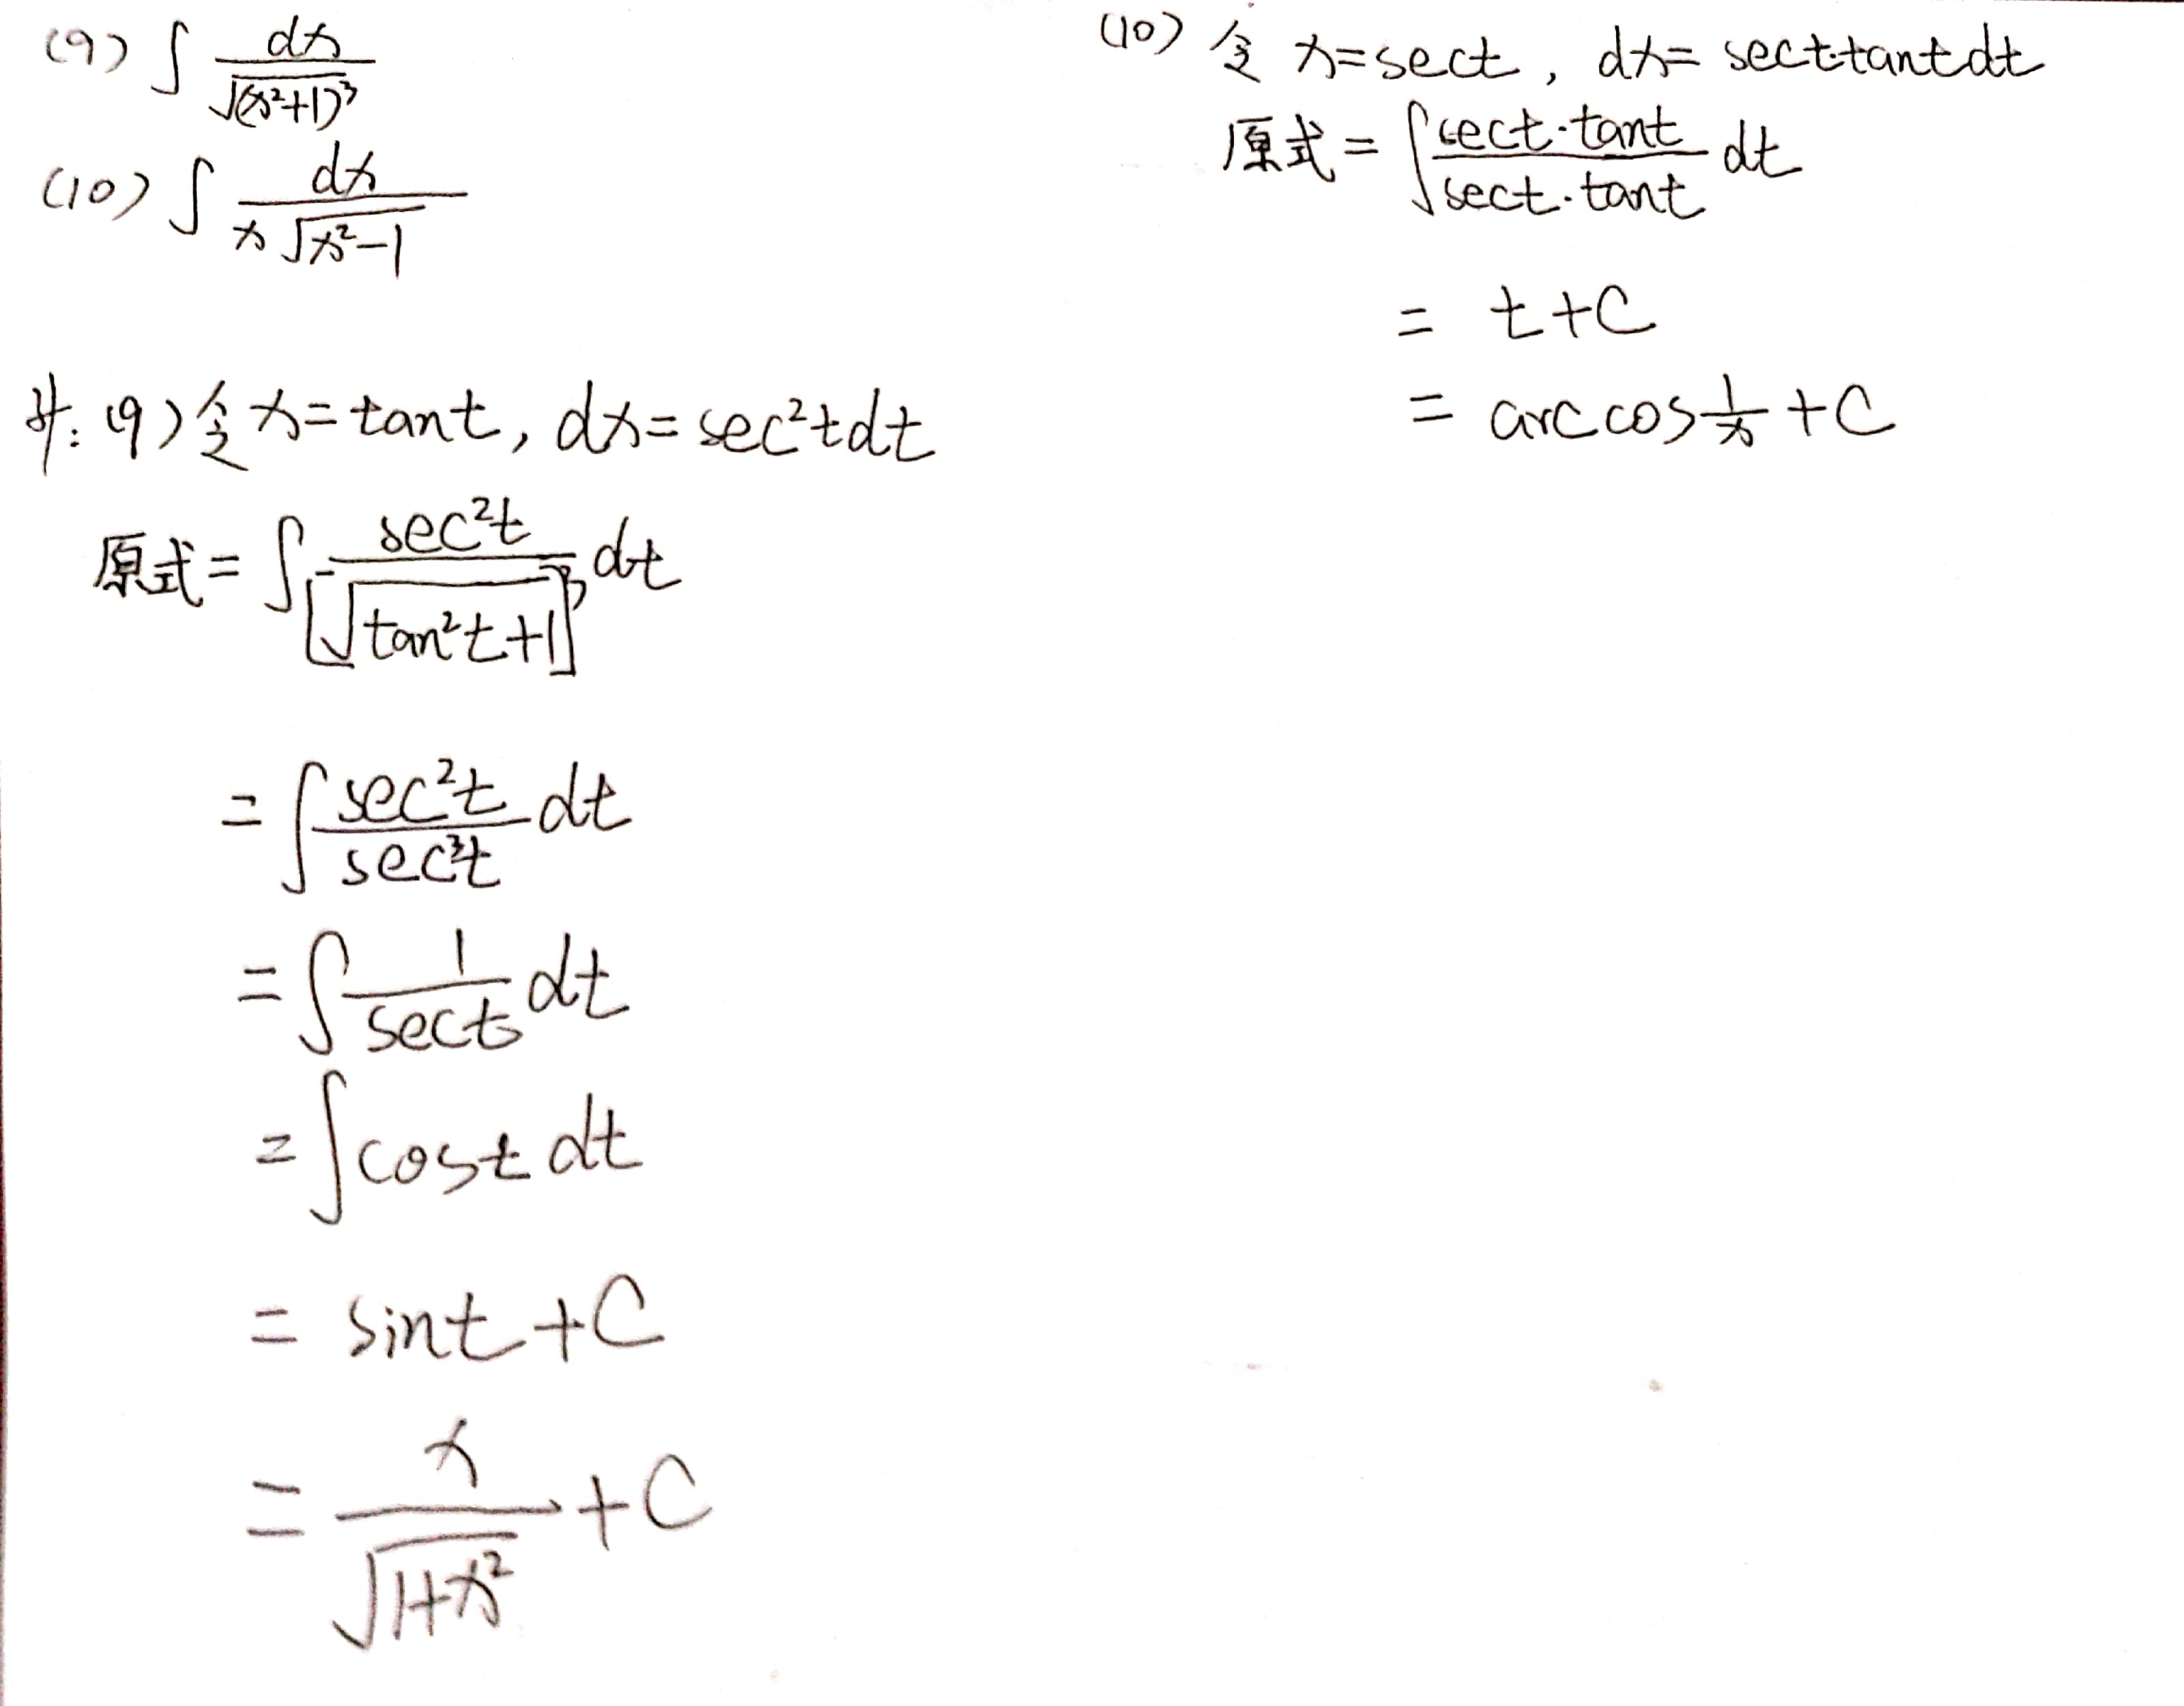 (9) ∫ dx / √(x²+1)³
(10) ∫ dx / x√x²-1
解: (9) 令 x=tant, dx=sec²tdt
原式= ∫ sec²t / [√tan²t+1]³ dt
= ∫ sec²t / sec³t dt
= ∫ 1 / sect dt
= ∫ cost dt
= sint +C
= x / √1+x² +C
(10) 令 x=sect, dx= sect·tantdt
原式= ∫ sect·tant / sect·tant dt
= t+C
= arccos 1/x +C